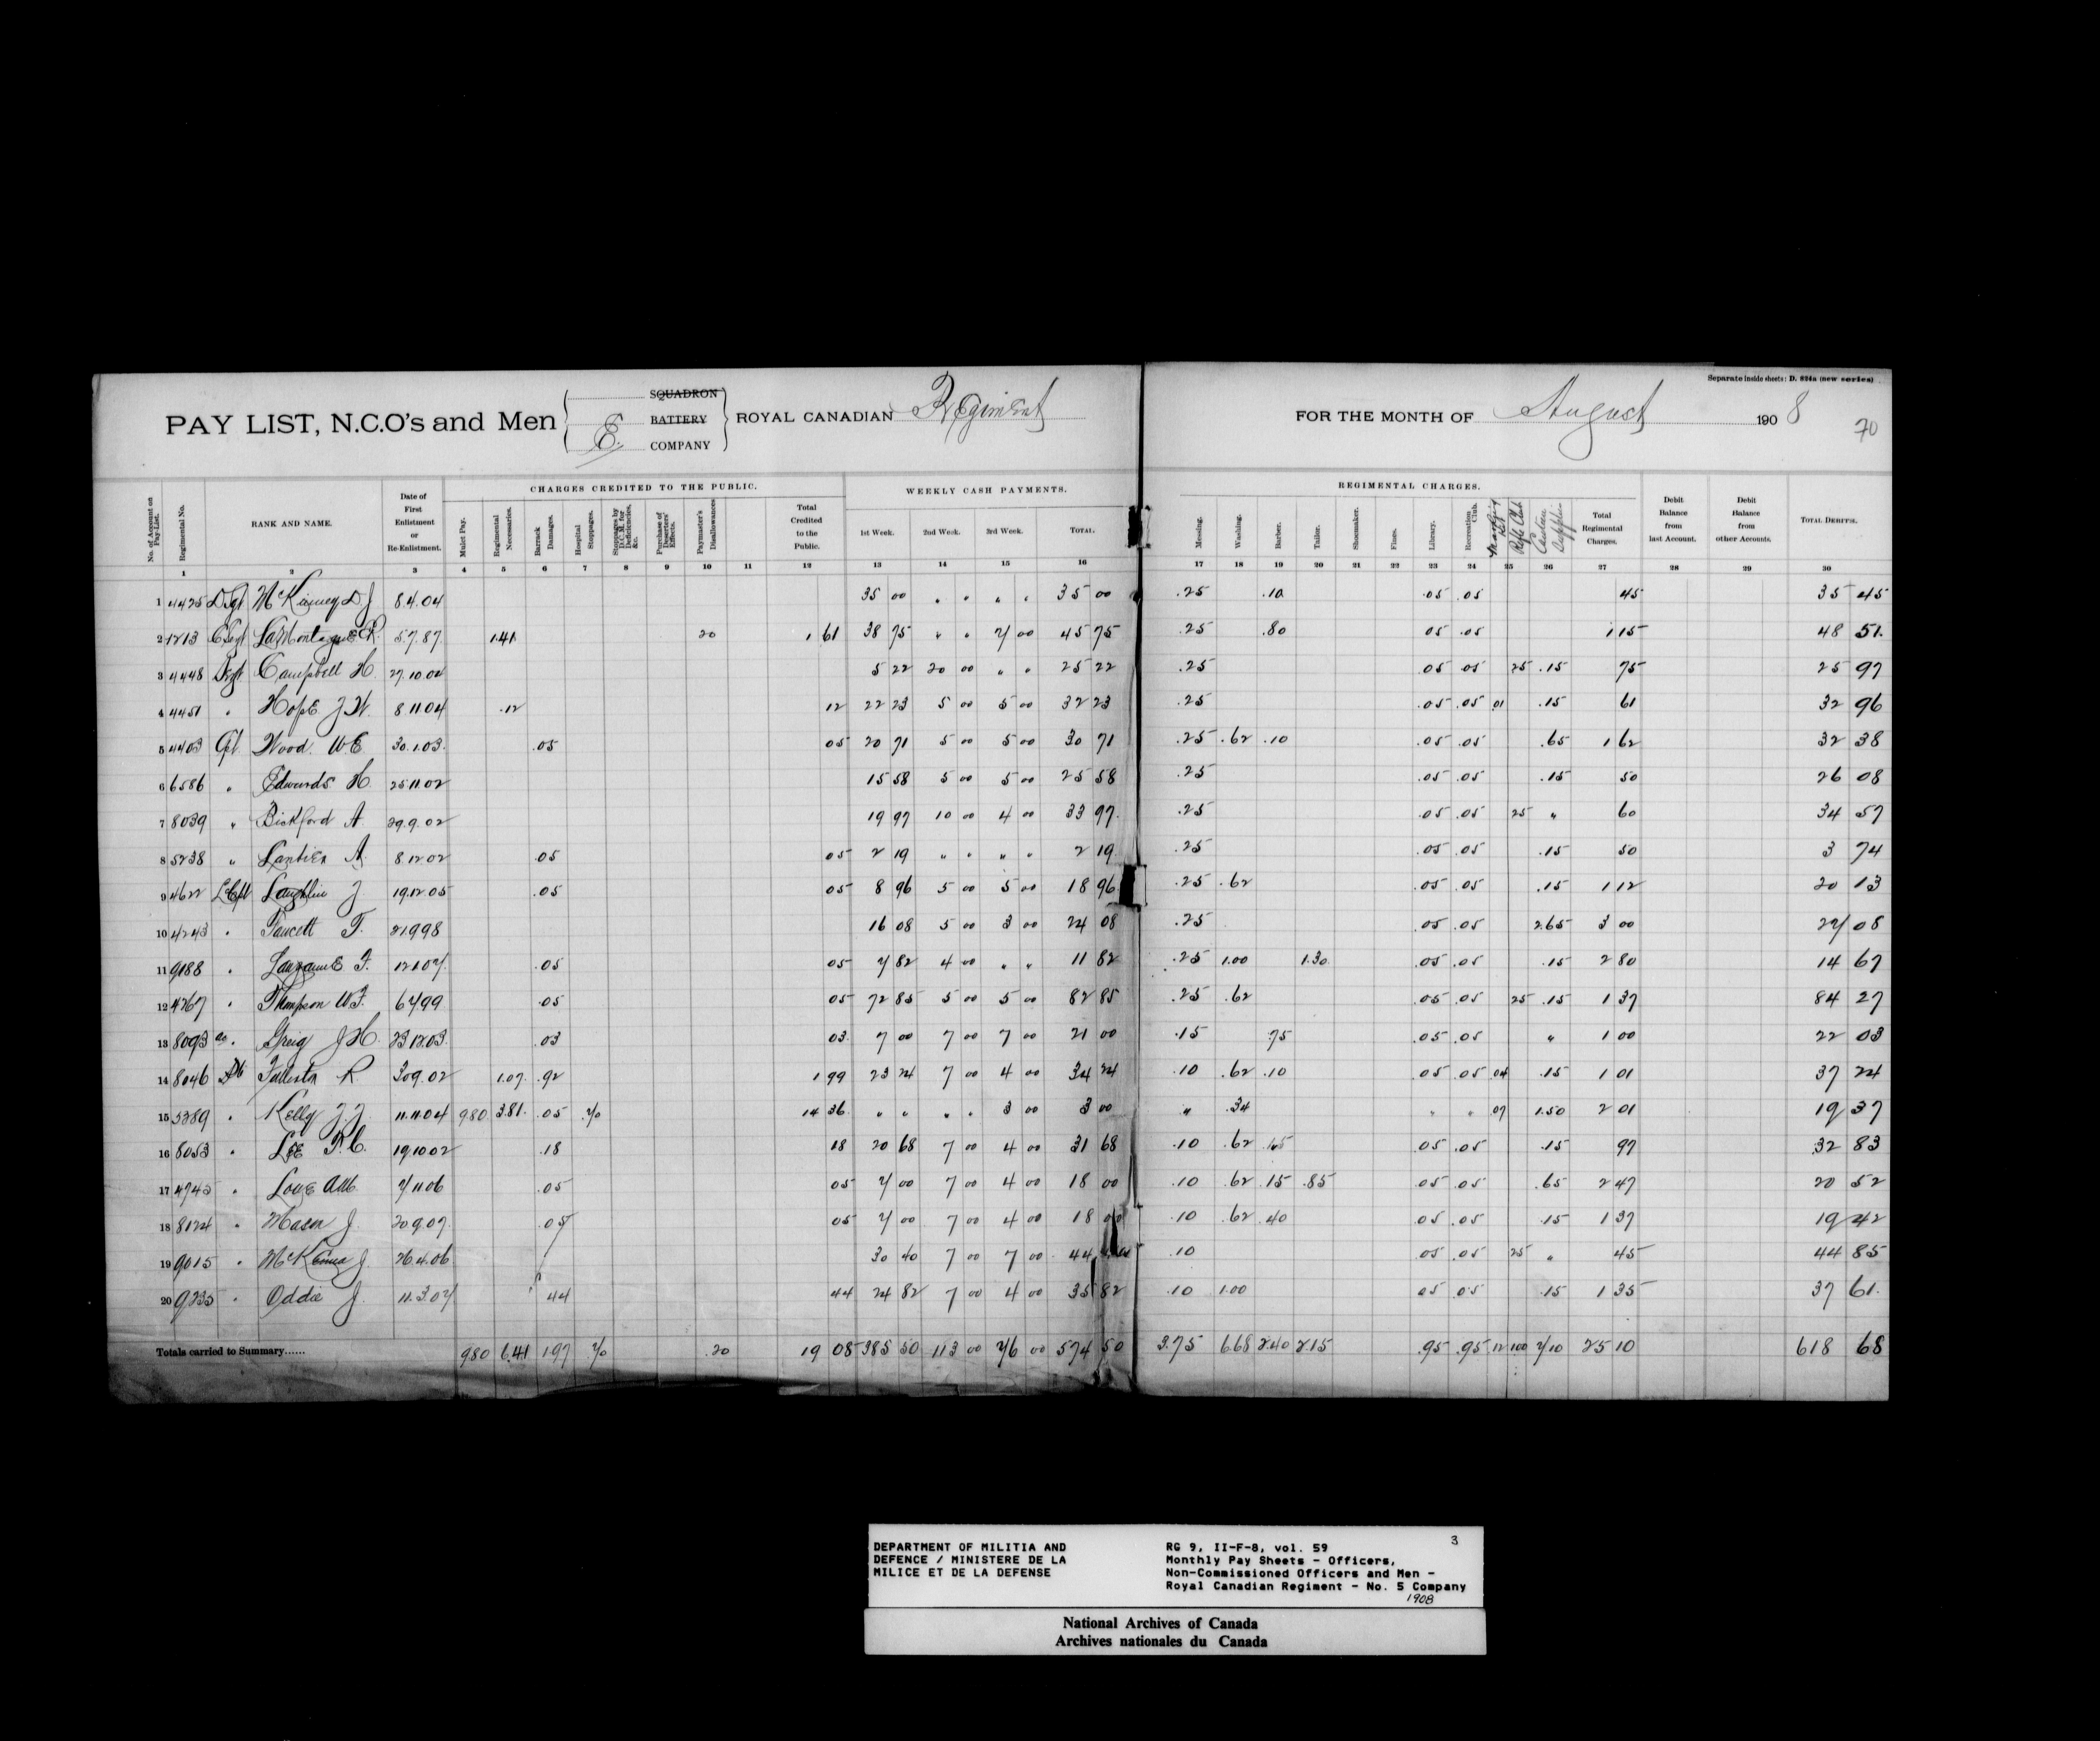 Separate inside sheets: D. 824a (new series)
PAY LIST, N.C.O's and Men { SQUADRON BATTERY E. COMPANY } ROYAL CANADIAN Regiment FOR THE MONTH OF August 1908 70
CHARGES CREDITED TO THE PUBLIC. WEEKLY CASH PAYMENTS. REGIMENTAL CHARGES.
No. of Account on Pay-List. Regimental No. RANK AND NAME. Date of First Enlistment or Re-Enlistment. Mulct Pay. Regimental Necessaries. Barrack Damages. Hospital Stoppages. Stoppages by D.C.M. for Deficiencies, &c. Purchase of Deserters' Effects. Paymaster's Disallowances Total Credited to the Public. 1st Week. 2nd Week. 3rd Week. TOTAL. Messing. Washing. Barber. Tailor. Shoemaker. Fines. Library. Recreation Club. Rifle Club Canteen Total Regimental Charges. Debit Balance from last Account. Debit Balance other Accounts. TOTAL DEBITS.
1 2 3 4 5 6 7 8 9 10 11 12 13 14 15 16 17 18 19 20 21 22 23 24 25 26 27 28 29 30
1 4425 D. J. 8.4.04 35 00 " " " " 35 00 .25 .10 .05 .05 45 35 45
2 1213 C Sgt LaMontague R. 5.7.87 1.41 20 1 61 38 75 " " 7 00 45 75 .25 .80 05 .05 1 15 48 51.
3 4448 Sgt Campbell H. 27.10.04 5 22 20 00 " " 25 22 .25 .05 05 25 .15 75 25 97
4 4451 " Hope J.W. 8 11 04 .12 12 22 23 5 00 5 00 32 23 .25 .05 .05 01 .15 61 32 96
5 4403 Cpl. Wood. W.E. 30.1.03. .05 05 20 71 5 00 5 00 30 71 .25 .62 .10 .05 .05 .65 1 62 32 38
6 6586 " Edwards H. 25 11 02 15 58 5 00 5 00 25 58 .25 .05 .05 .15 50 26 08
7 8039 " Bickford A. 29.9.02 19 97 10 00 4 00 33 97 .25 .05 .05 25 " 60 34 57
8 5238 " Lantier A. 8 12 02 .05 05 2 19 " " " " 2 19 .25 .05 .05 .15 50 3 74
9 4622 L Cpl Laughlin J. 19.12.05 .05 05 8 96 5 00 5 00 18 96 .25 .62 .05 .05 .15 1 12 20 13
10 4243 " Faucett T. 21 9 98 16 08 5 00 3 00 24 08 .25 .05 .05 2.65 3 00 27 08
11 9188 " F. 12.1.07. .05 05 7 82 4 00 " " 11 82 .25 1.00 1.30 .05 .05 .15 2 80 14 67
12 4267 " Thompson W.F. 6 7 99 .05 05 72 85 5 00 5 00 82 85 .25 .62 .05 .05 25 .15 1 37 84 27
13 8093 " Greig J.H. 23 12 03. .03 03. 7 00 7 00 7 00 21 00 .15 .75 .05 .05 " 1 00 22 03
14 8046 Pte Fullerton R. 30 9.02 1.07. .92 1 99 23 24 7 00 4 00 34 24 .10 .62 .10 .05 .05 04 .15 1 01 37 24
15 5389 " Kelly J.J. 11.11.04 9 80 3.81. .05 .70 14 36 " " " " 3 00 3 00 " .34 " " 07 1.50 2 01 19 37
16 8053 " Lee P.C. 19 10 02 .18 18 20 68 7 00 4 00 31 68 .10 .62 05 .05 .15 97 32 83
17 4745 " Love 7 11 06 .05 05 7 00 7 00 4 00 18 00 .10 .62 .15 .85 .05 .05 .65 2 47 20 52
18 8124 " Mason J. 20 9 07. .05 05 7 00 7 00 4 00 18 00 .10 .62 .40 .05 .05 .15 1 37 19 42
19 9015 " J. 26.4.06 30 40 7 00 7 00 44 40 .10 .05 .05 25 " 45 44 85
20 9235 " Oddie J. 11.3.07 44 44 24 82 7 00 4 00 35 82 .10 1.00 05 .05 .15 1 35 37 61.
Totals carried to Summary...... 9 80 6.41 1.97 .70 .20 19 08 385 50 113 00 76 00 574 50 3.75 6.68 2.40 2.15 .95 .95 .12 1 00 7/10 25 10 618 68
DEPARTMENT OF MILITIA AND
DEFENCE / MINISTERE DE LA
MILICE ET DE LA DEFENSE
RG 9, II-F-8, vol. 59 3
Monthly Pay Sheets - Officers,
Non-Commissioned Officers and Men -
Royal Canadian Regiment - No. 5 Company
1908
National Archives of Canada
Archives nationales du Canada